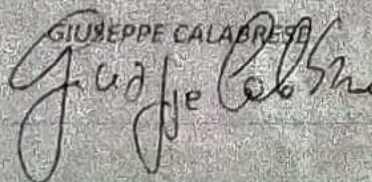 GIUSEPPE CALABRESE
Giuseppe Calabrese